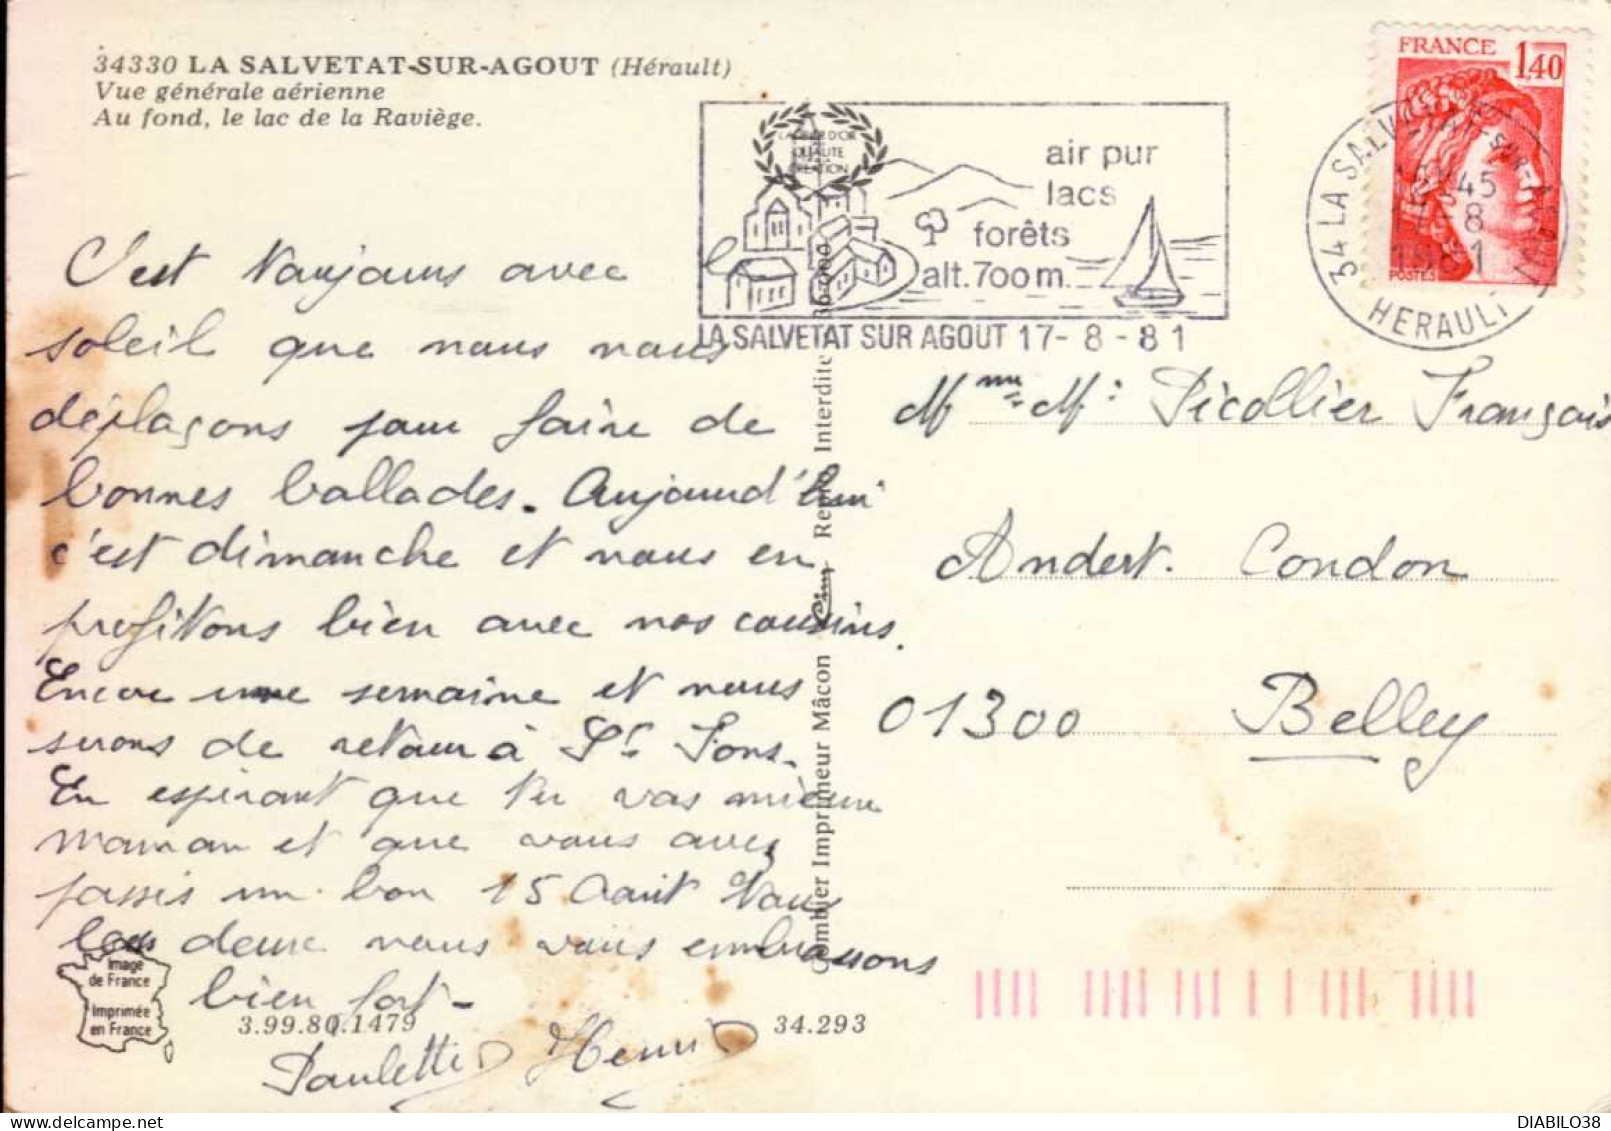 34330 LA SALVETAT-SUR-AGOUT (Hérault)
Vue générale aérienne
Au fond, le lac de la Raviège.
C'est toujours avec le
soleil que nous nous
déplaçons pour faire de
bonnes ballades. Aujourd'hui
c'est dimanche et nous en
profitons bien avec nos cousins.
Encore une semaine et nous
serons de retour à St Fons.
En espérant que tu vas mieux
maman et que vous avez
passés un bon 15 Août Nous
tous deux nous vous embrassons
bien fort-
Paulette Henri
Image
de France
Imprimée
en France
3.99.80.1479
34.293
Combier Imprimeur Mâcon Cim
Interdite
QUALITE
air pur
lacs
forêts
alt. 700 m.
LA SALVETAT SUR AGOUT 17-8-81
FRANCE
1,40
POSTES
34 LA SALVETAT-SUR-AGOUT
45
17-8
1981
HERAULT
Mme Mr Picollier François
Andert. Condon
01300 Belley
DIABILO38